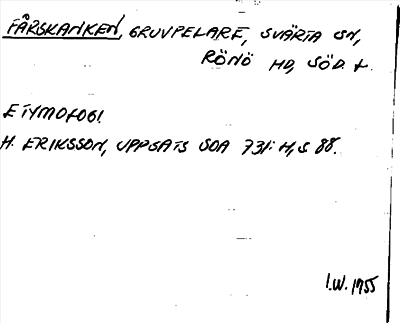 FÅRSKANKEN, GRUVPELARE, SVÄRTA SN,
RÖNÖ HD, SÖD. L.
ETYMOLOGI.
H. ERIKSSON, UPPSATS SOA 731: H, S 88.
I.W. 1955